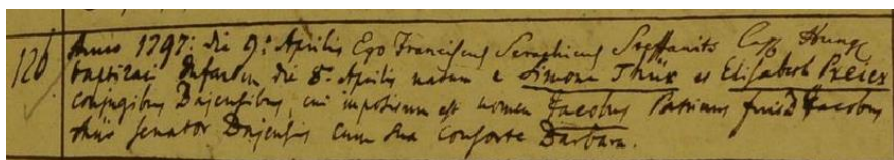 126 Anno 1797: die 9: Aprilis Ego Franciscus Seraphicus Steffanits Capp Hung
baptizavi Infantem die 8: Aprilis natum e Simone Thür et Elisabeth Preier
conjugibus Bajensibus, cui impositum est nomen Jacobus Patrinus fuit Jacobus
Thür senator Bajensis cum sua consorte Barbara.